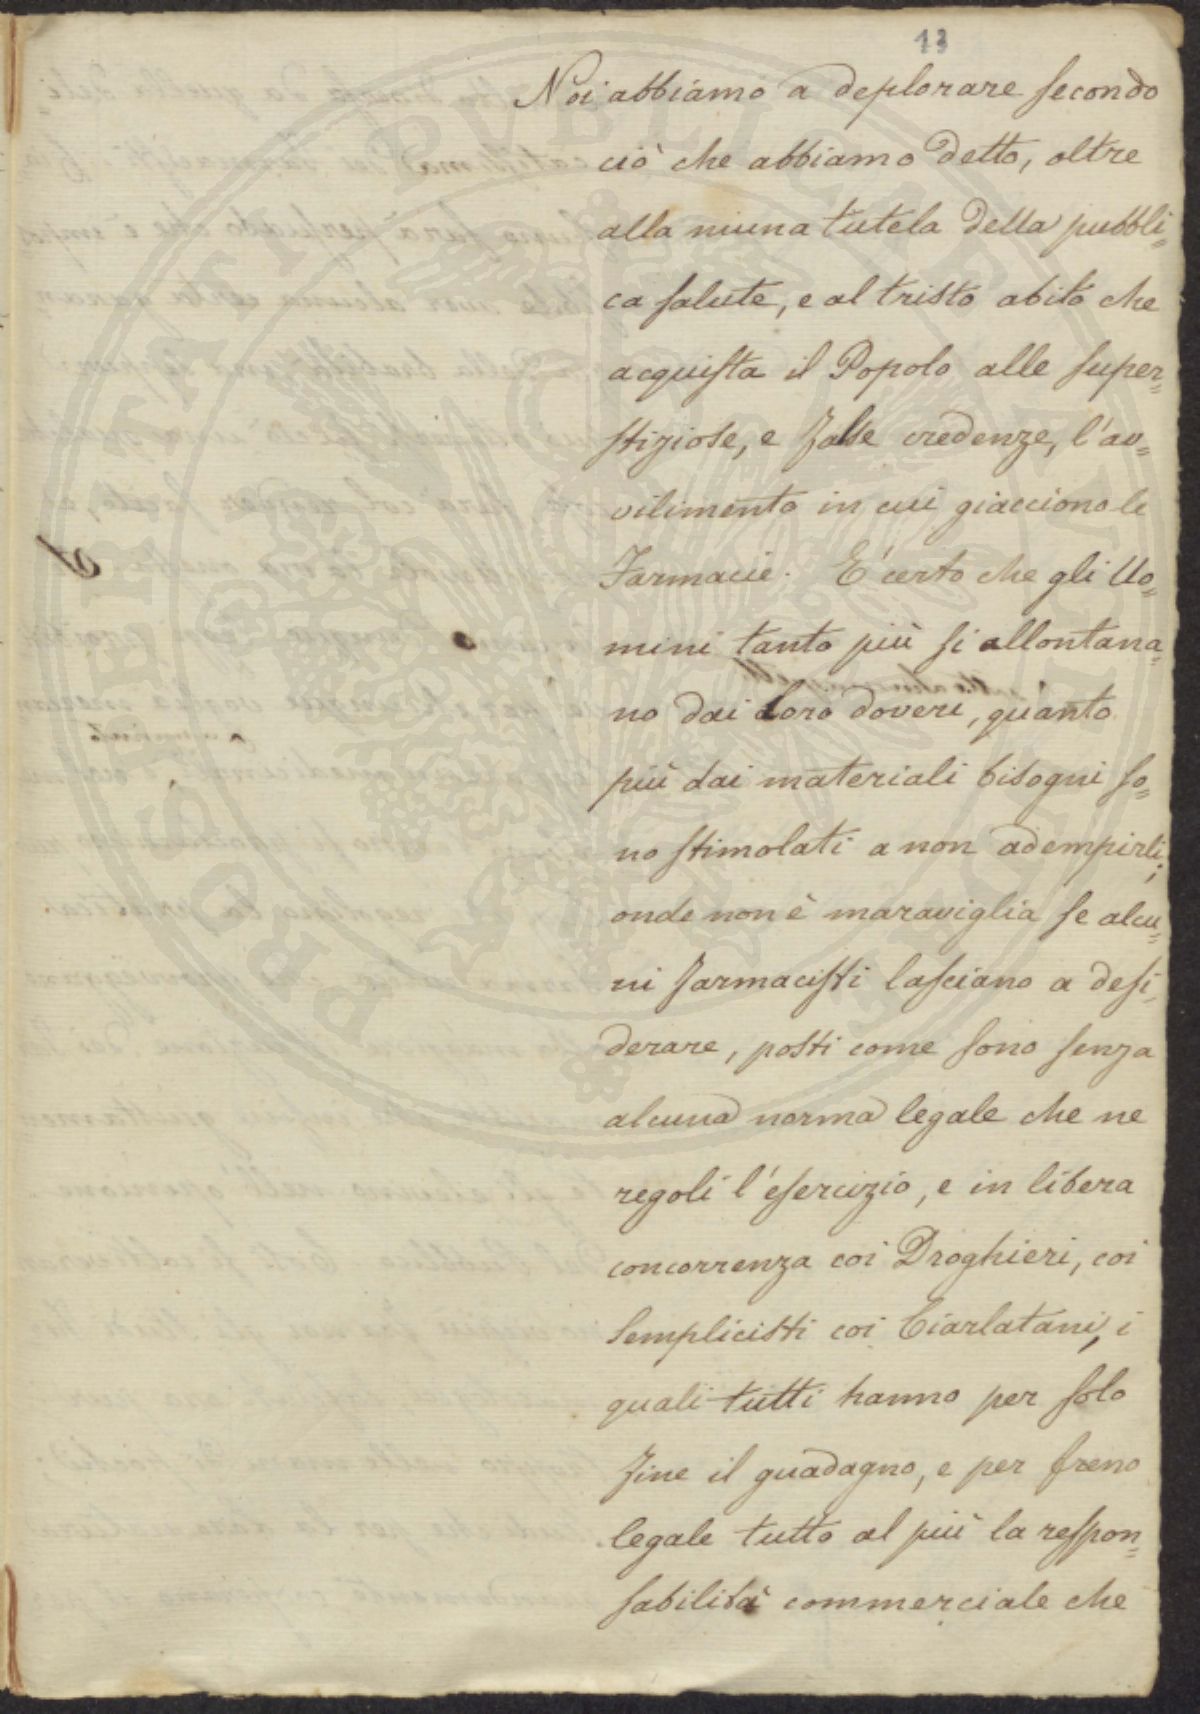 13
Noi abbiamo a deplorare secondo
ciò che abbiamo detto, oltre
alla niuna tutela della pubbli=
ca salute, e al tristo abito che
acquista il Popolo alle super=
stiziose, e false credenze, l'av=
vilimento in cui giacciono le
Farmacie. E' certo che gli Uo=
mini tanto più si allontana=
no dai loro doveri, quanto
più dai materiali bisogni so=
no stimolati a non adempirli;
onde non è maraviglia se alcu=
ni Farmacisti lasciano a desi=
derare, posti come sono senza
alcuna norma legale che ne
regoli l'esercizio, e in libera
concorrenza coi Droghieri, coi
Semplicisti coi Ciarlatani, i
quali tutti hanno per solo
fine il guadagno, e per freno
legale tutto al più la respon=
sabilità commerciale che
PROSPERITATI PUBLICAE AUGENDAE